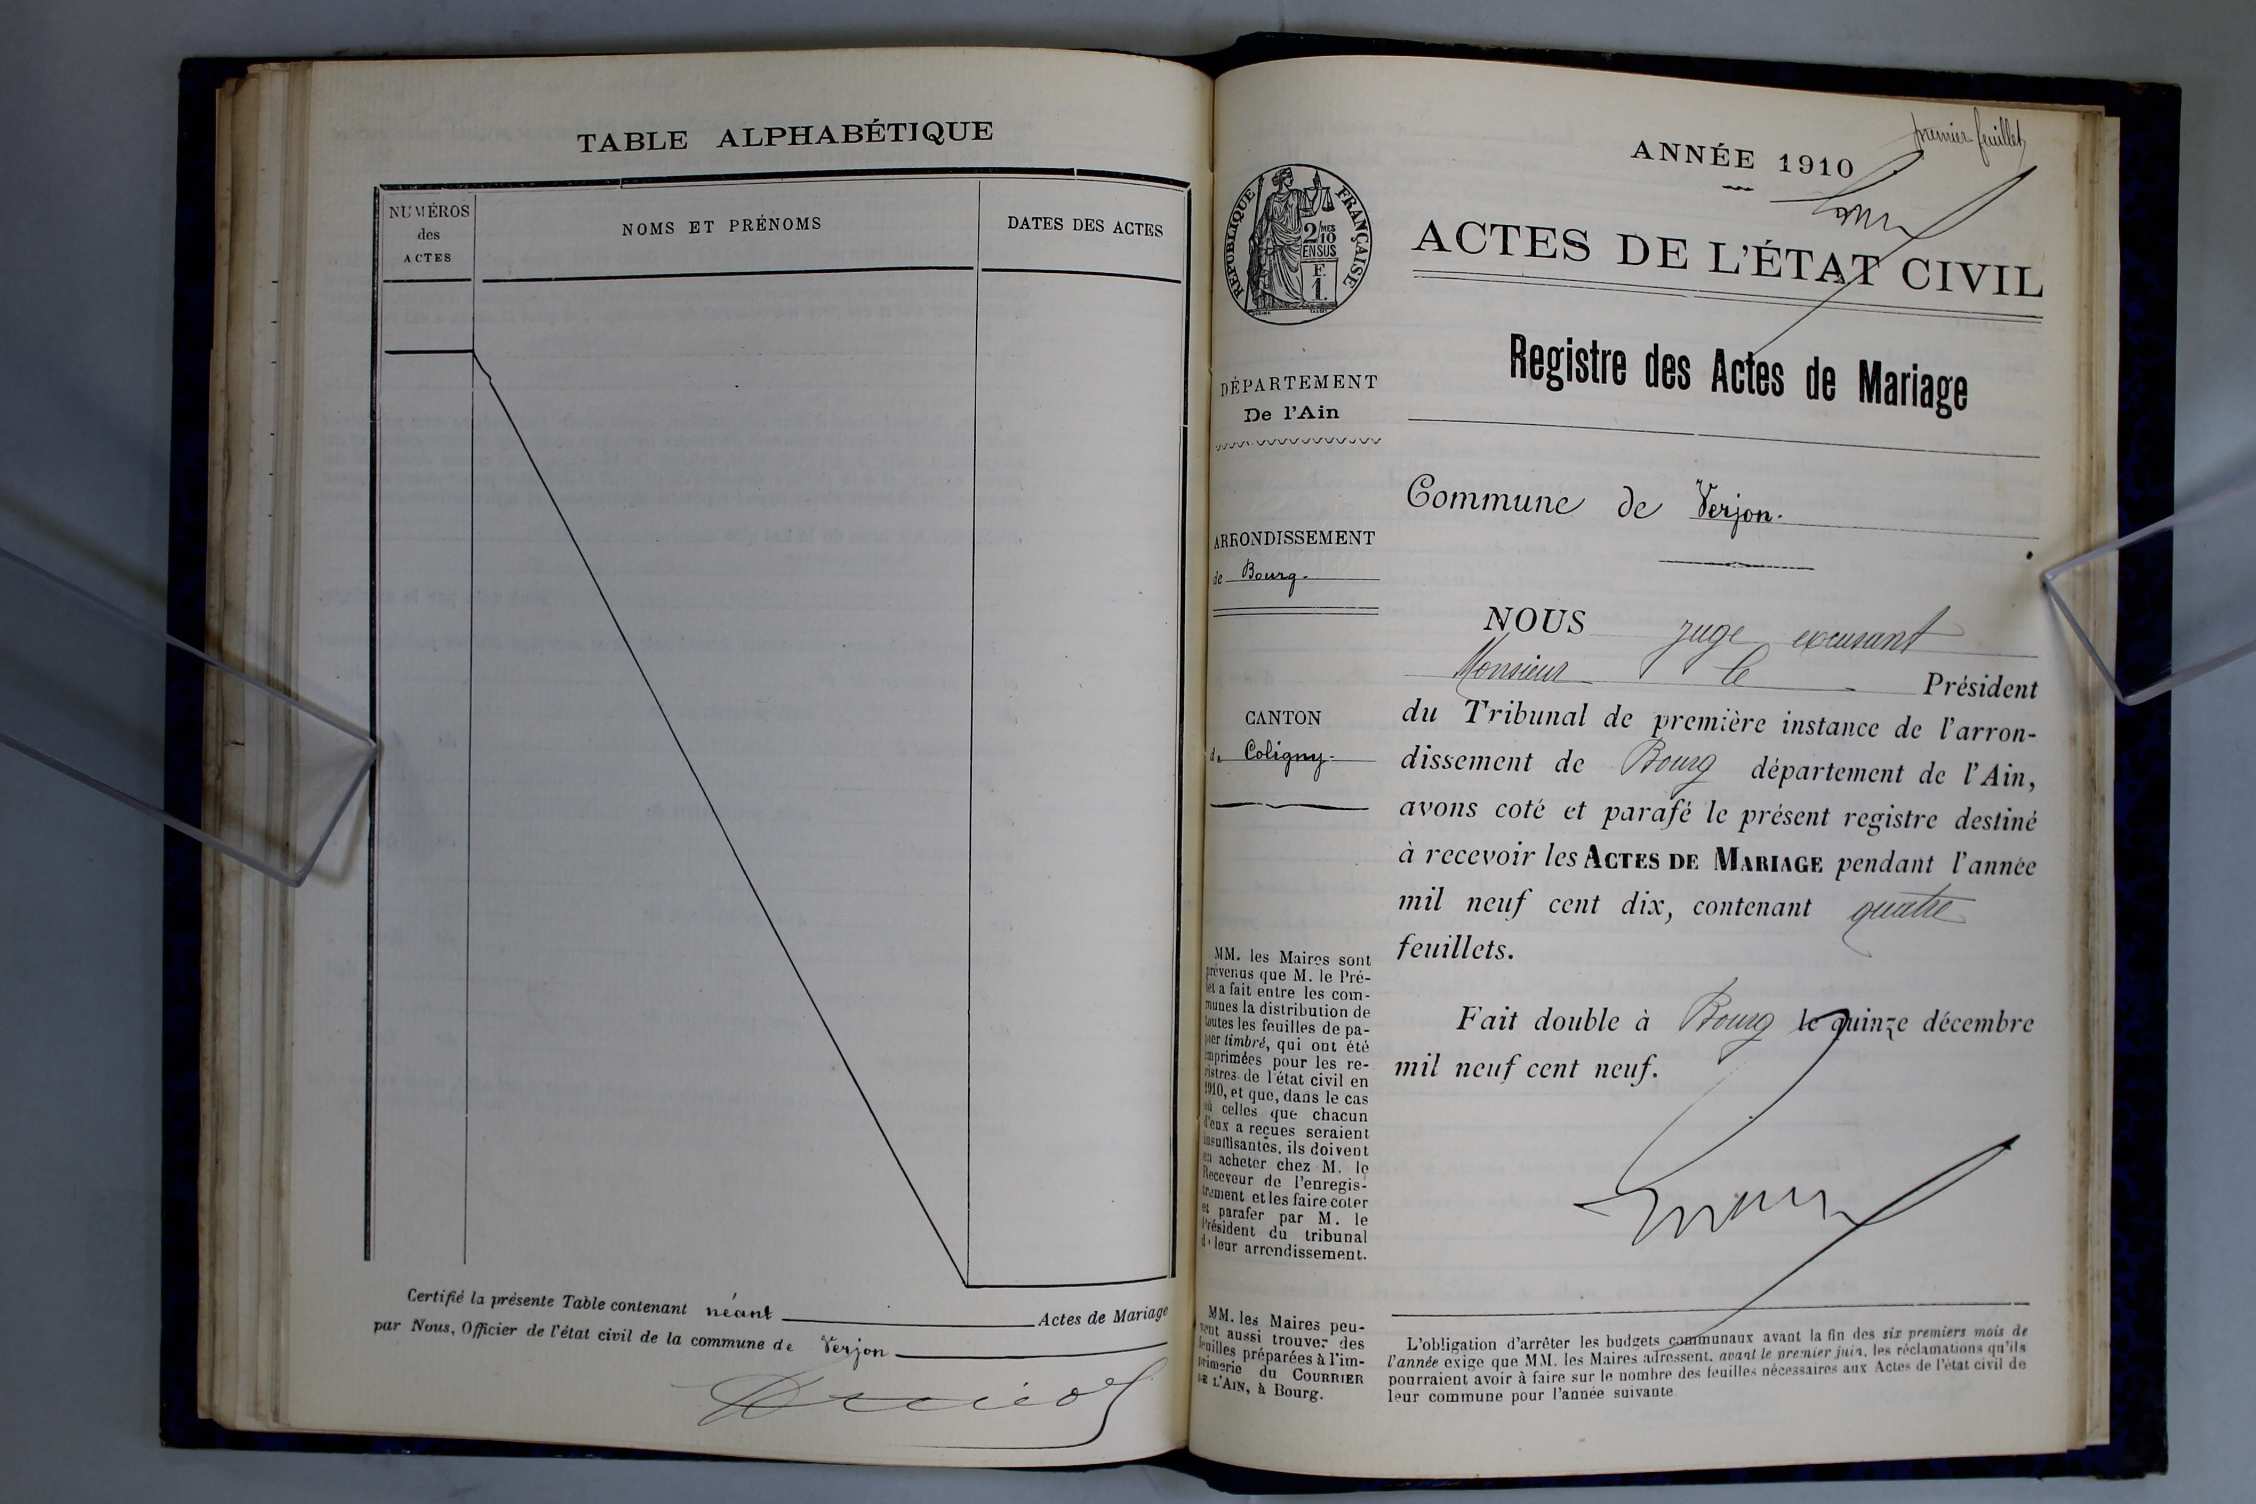 TABLE ALPHABÉTIQUE
NUMÉROS
des
ACTES
NOMS ET PRÉNOMS
DATES DES ACTES
Certifié la présente Table contenant néant Actes de Mariage
par Nous, Officier de l'état civil de la commune de Verjon
premier feuillet
ANNÉE 1910
RÉPUBLIQUE FRANÇAISE
2/10MES
EN SUS
F.
1.
ACTES DE L'ÉTAT CIVIL
Registre des Actes de Mariage
DÉPARTEMENT
De l'Ain
ARRONDISSEMENT
de Bourg.
CANTON
de Coligny
MM. les Maires sont
prévenus que M. le Pré-
fet a fait entre les com-
munes la distribution de
toutes les feuilles de pa-
pier timbré, qui ont été
imprimées pour les re-
gistres de l'état civil en
1910, et que, dans le cas
où celles que chacun
d'eux a reçues seraient
insuffisantes, ils doivent
en acheter chez M. le
Receveur de l'enregis-
trement et les faire coter
et parafer par M. le
Président du tribunal
de leur arrondissement.
MM. les Maires peu-
vent aussi trouver des
feuilles préparées à l'im-
primerie du COURRIER
DE L'AIN, à Bourg.
Commune de Verjon.
NOUS juge excusant
Monsieur le Président
du Tribunal de première instance de l'arron-
dissement de Bourg département de l'Ain,
avons coté et parafé le présent registre destiné
à recevoir les ACTES DE MARIAGE pendant l'année
mil neuf cent dix, contenant quatre
feuillets.
Fait double à Bourg le quinze décembre
mil neuf cent neuf.
L'obligation d'arrêter les budgets communaux avant la fin des six premiers mois de
l'année exige que MM. les Maires adressent, avant le premier juin, les réclamations qu'ils
pourraient avoir à faire sur le nombre des feuilles nécessaires aux Actes de l'état civil de
leur commune pour l'année suivante.